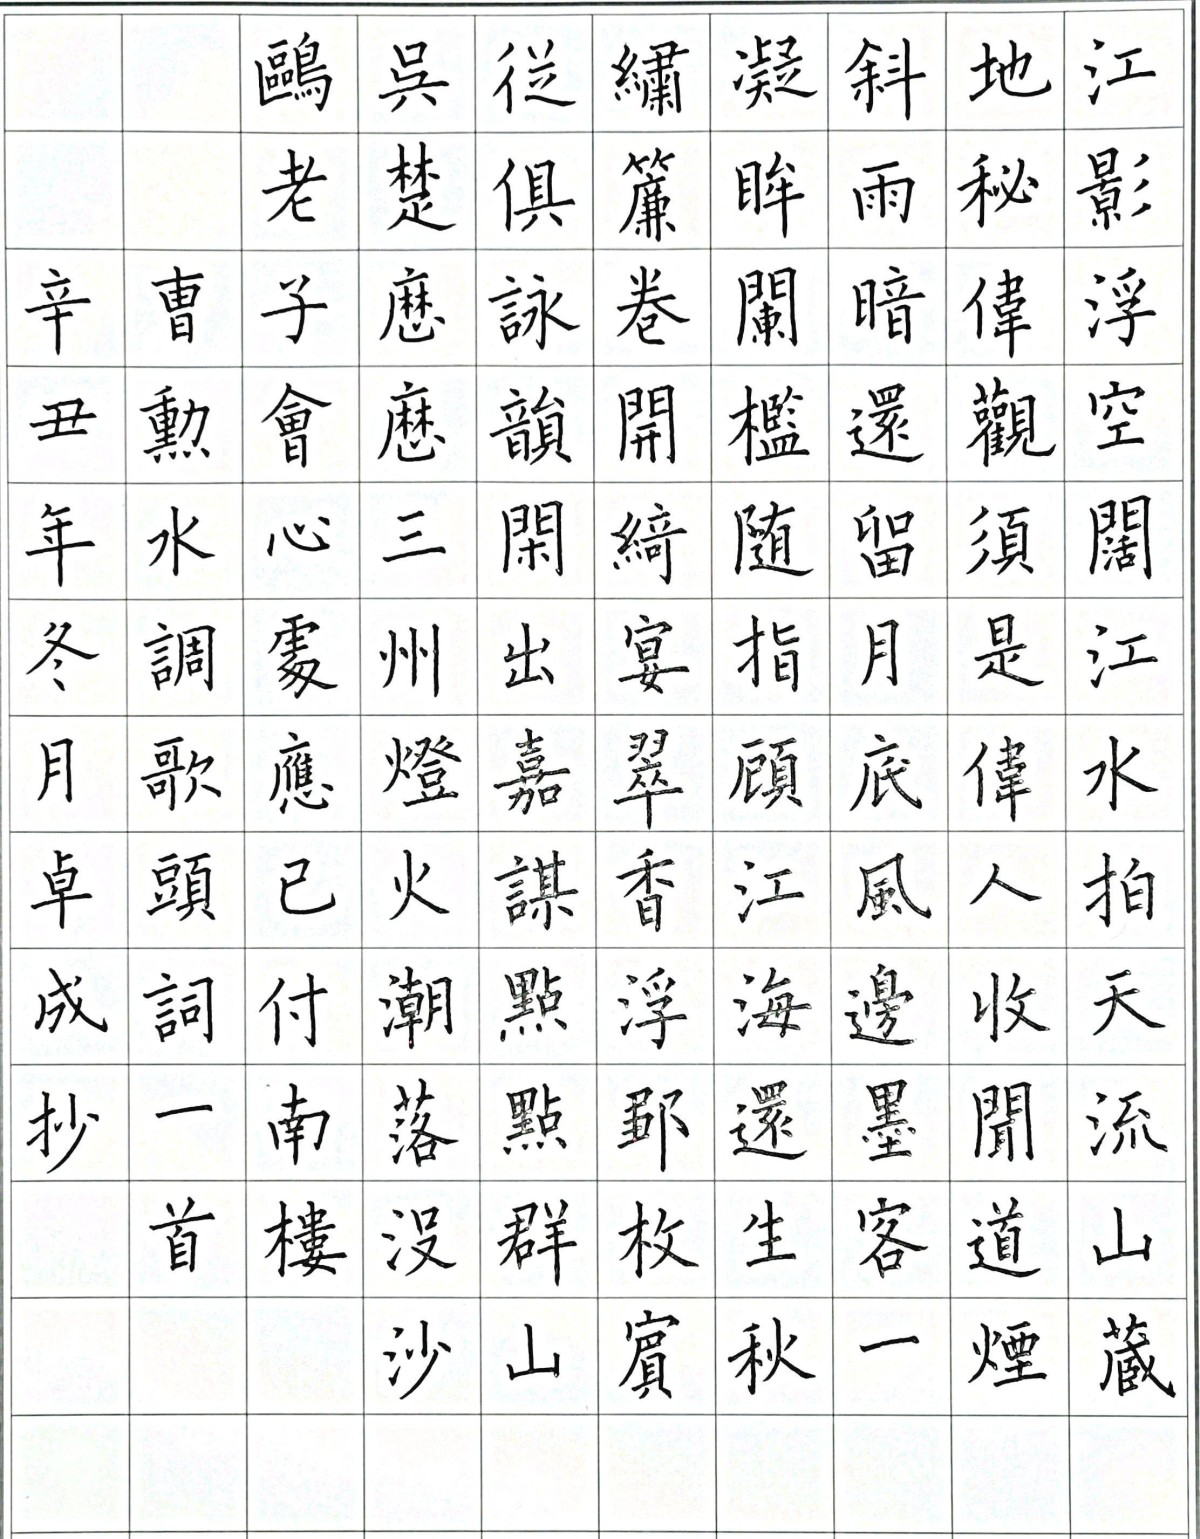 江影浮空闊江水拍天流山蔵
地秘偉觀須是偉人收聞道煙
斜雨暗還留月底風邊墨客一
凝眸闌檻随指顧江海還生秋
繡簾卷開綺宴翠香浮鄒枚賓
從俱詠韻閑出嘉謀點點群山
吳楚應應三州燈火潮落沒沙
鷗老子會心處應已付南樓
曹勳水調歌頭詞一首
辛丑年冬月卓成抄